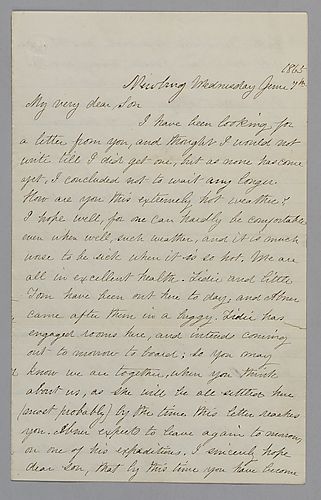 1865
Newburg Wednesday June 7th
My very dear Son
I have been looking for
a letter from you, and thought I would not
write till I did get one, but as none has come
yet, I concluded not to wait any longer.
How are you this extremely hot weather?
I hope well, for one can hardly be comfortable
even when well, such weather, and it is much
worse to be sick when it is so hot. We are
all in excellent health. Lidie and little
Tom have been out here to day, and Abner
came after them in a buggy. Lidie has
engaged rooms here, and intends coming
out to morrow to board; so you may
know we are together, when you think
about us, as she will be all settled here
(most probably) by the time this letter reaches
you. Abner expects to leave again to morrow,
on one of his expeditions. I sincerely hope
dear Son, that by this time you have become